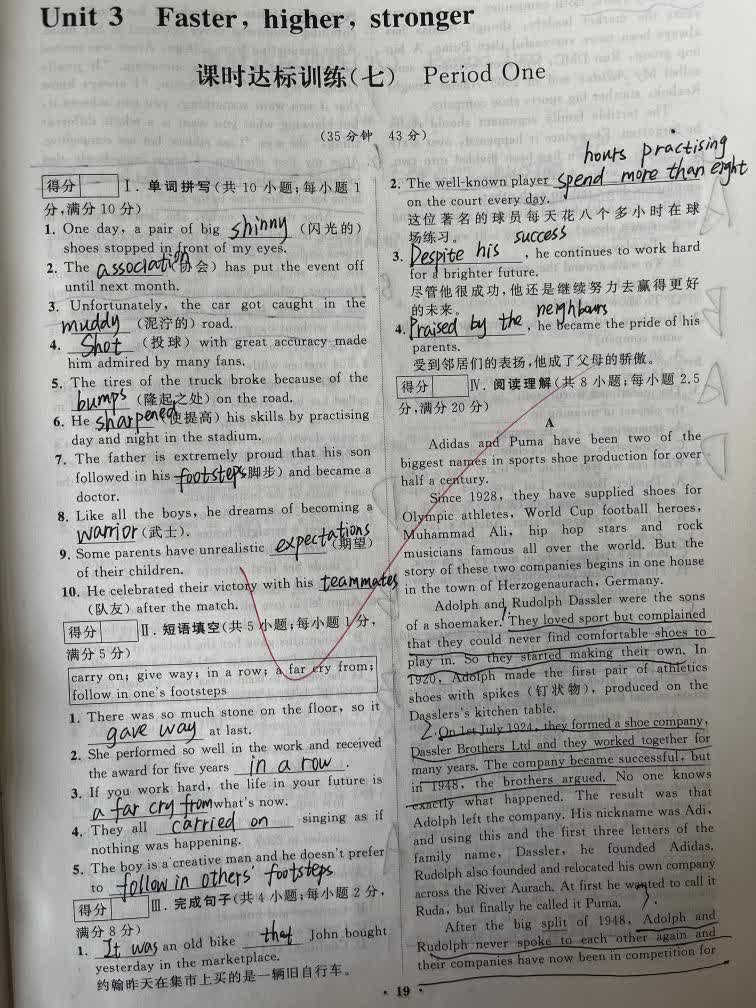 Unit 3 Faster, higher, stronger
课时达标训练(七) Period One
(35分钟 43分)
得分 Ⅰ. 单词拼写(共10小题;每小题1
分,满分10分)
1. One day, a pair of big shinny (闪光的)
shoes stopped in front of my eyes.
2. The association (协会) has put the event off
until next month.
3. Unfortunately, the car got caught in the
muddy (泥泞的) road.
4. Shot (投球) with great accuracy made
him admired by many fans.
5. The tires of the truck broke because of the
bumps (隆起之处) on the road.
6. He sharpened (使提高) his skills by practising
day and night in the stadium.
7. The father is extremely proud that his son
followed in his footsteps (脚步) and became a
doctor.
8. Like all the boys, he dreams of becoming a
warrior (武士).
9. Some parents have unrealistic expectations (期望)
of their children.
10. He celebrated their victory with his teammates
(队友) after the match.
得分 Ⅱ. 短语填空(共5小题;每小题1分,
满分5分)
carry on; give way; in a row; a far cry from;
follow in one's footsteps
1. There was so much stone on the floor, so it
gave way at last.
2. She performed so well in the work and received
the award for five years in a row.
3. If you work hard, the life in your future is
a far cry from what's now.
4. They all carried on singing as if
nothing was happening.
5. The boy is a creative man and he doesn't prefer
to follow in others' footsteps
得分 Ⅲ. 完成句子(共4小题;每小题2分,
满分8分)
1. It was an old bike that John bought
yesterday in the marketplace.
约翰昨天在集市上买的是一辆旧自行车。
hours practising
2. The well-known player spend more than eight
on the court every day.
这位著名的球员每天花八个多小时在球
场练习。
success
3. Despite his , he continues to work hard
for a brighter future.
尽管他很成功,他还是继续努力去赢得更好
的未来。
neighbours
4. Praised by the , he became the pride of his
parents.
受到邻居们的表扬,他成了父母的骄傲。
得分 Ⅳ. 阅读理解(共8小题;每小题2.5
分,满分20分)
A
Adidas and Puma have been two of the
biggest names in sports shoe production for over
half a century.
Since 1928, they have supplied shoes for
Olympic athletes, World Cup football heroes,
Muhammad Ali, hip hop stars and rock
musicians famous all over the world. But the
story of these two companies begins in one house
in the town of Herzogenaurach, Germany.
Adolph and Rudolph Dassler were the sons
of a shoemaker. They loved sport but complained
that they could never find comfortable shoes to
play in. So they started making their own. In
1920, Adolph made the first pair of athletics
shoes with spikes (钉状物), produced on the
Dasslers's kitchen table.
2. On 1st July 1924, they formed a shoe company,
Dassler Brothers Ltd and they worked together for
many years. The company became successful, but
in 1948, the brothers argued. No one knows
exactly what happened. The result was that
Adolph left the company. His nickname was Adi,
and using this and the first three letters of the
family name, Dassler, he founded Adidas.
Rudolph also founded and relocated his own company
across the River Aurach. At first he wanted to call it
Ruda, but finally he called it Puma.
3.
After the big split of 1948, Adolph and
Rudolph never spoke to each other again and
their companies have now been in competition for
· 19 ·